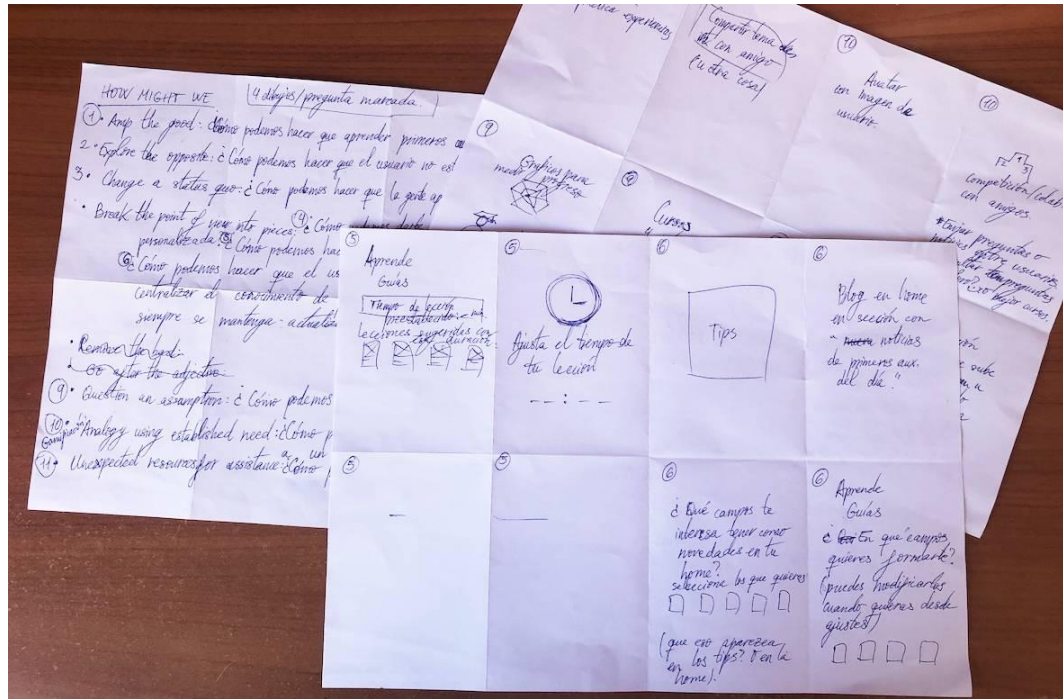 HOW MIGHT WE
4 dibujos/pregunta marcada.
① • Amp the good: ¿Cómo podemos hacer que aprender primeros
2 • Explore the opposite: ¿Cómo podemos hacer que el usuario no
3 • Change a status quo: ¿Cómo podemos hacer que la gente
• Break the point of view into pieces: ④ ¿Cómo
personalizada. ⑤ ¿Cómo podemos
⑥ ¿Cómo podemos hacer que el
centralizar el conocimiento de
siempre se mantenga
• Remove the bad:
• Go after the adjective:
⑨ • Question an assumption: ¿Cómo podemos
⑩ • Analogy using established need: ¿Cómo
a un
⑪ • Unexpected resources for assistance: ¿Cómo
experiencias
Compartir tema
con amigo
(u otra cosa)
⑩
Avatar
con imagen de
usuario.
⑩
2 1 3
con amigos.
preguntas o
entre usuarios.
mejor curso.
⑨
Gráficos para
medir progreso
⑨
Cursos
⑤
Aprende
Guías
Tiempo de
preestablecido
Lecciones sugeridas con
duración.
⑤
Ajusta el tiempo de
tu lección
--:--
⑥
Tips
⑥
Blog en home
en sección con
" noticias
de primeros aux.
del día."
⑤
⑤
⑥
¿Qué campos te
interesa tener como
novedades en tu
home?
seleccione los que quieres
(que eso aparezca
en los tips? O en la
home).
⑥
Aprende
Guías
¿En qué campos
quieres formarte?
(puedes modificarlos
cuando quieras desde
ajustes)